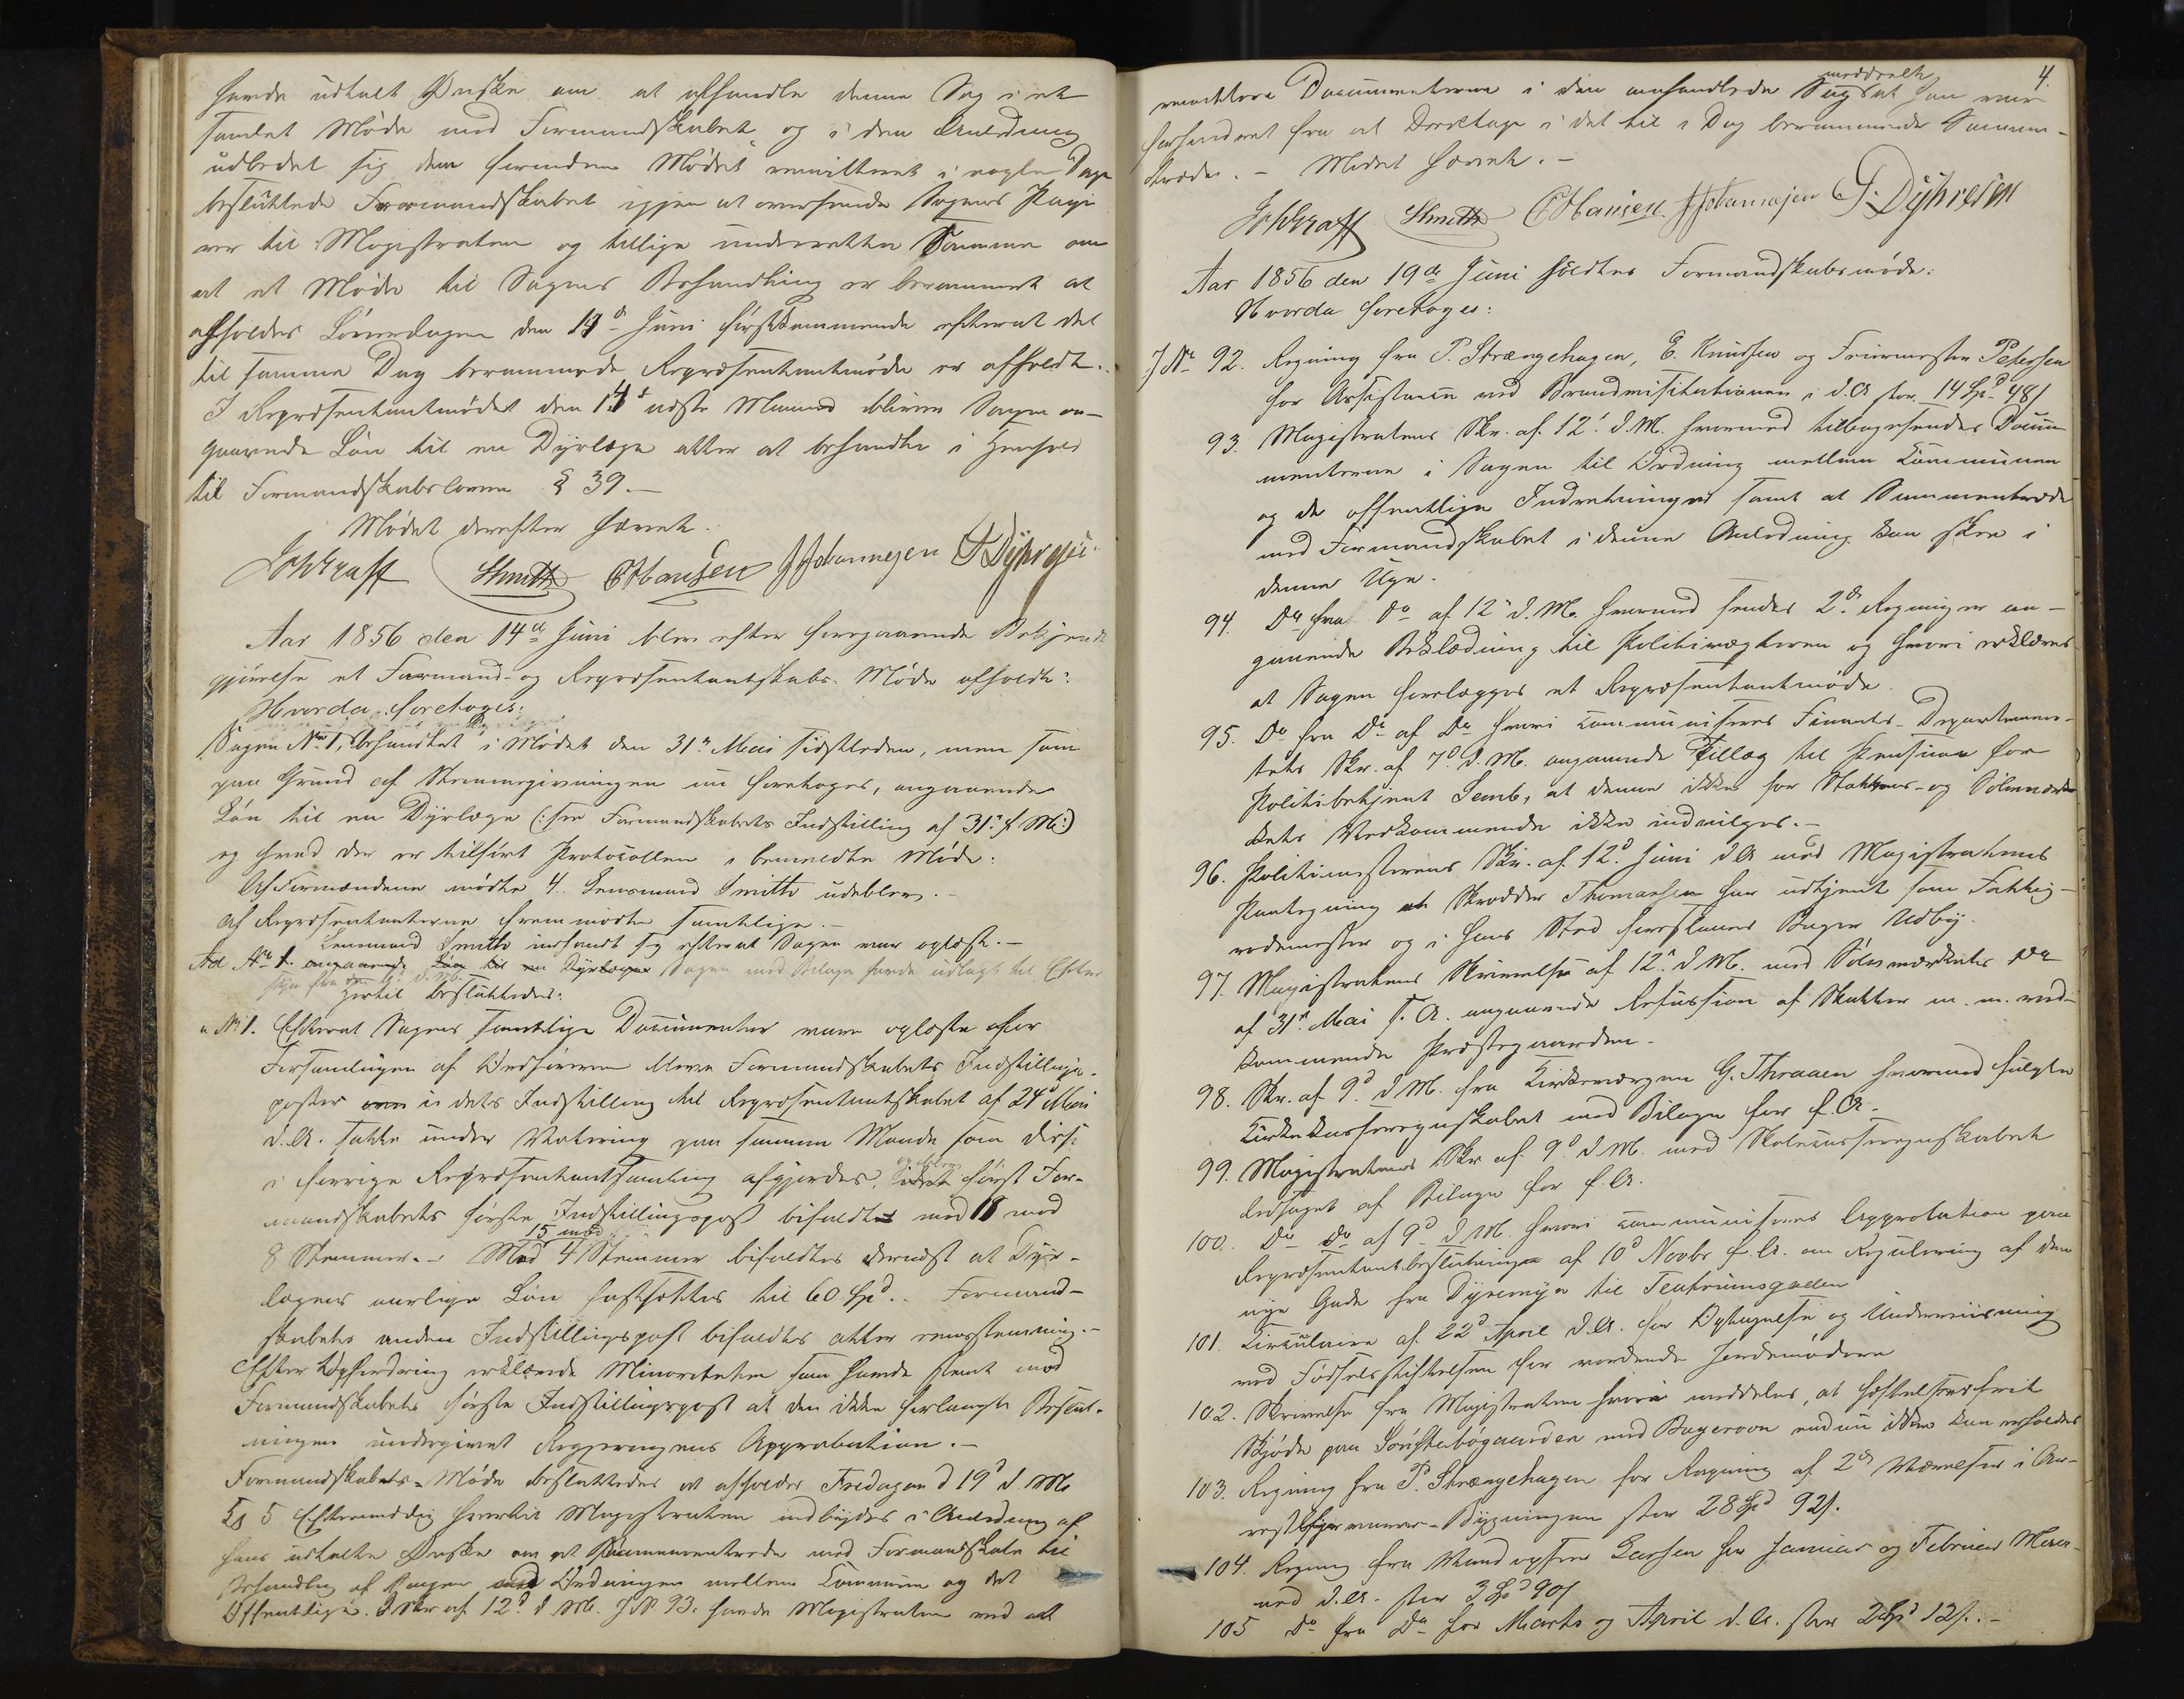 havde udtalt Ønske om at afhandle denne Sag i et
samlet Møde med Formandskabet og i den Anledning
udbedet sig den forinden Mødet remitteret i nogle Dage
besluttede Formandskabet igjen at oversende Sagens Papi-
rer til Magistraten og tillige underrette Samme om
at et Møde til Sagens Behandling er berammet at
afholdes Løverdagen den 14d Juni førstkommende efterat det
til samme Dag berammede Repræsentantmøde er afholdt.
I Repræsentantmødet den 14d næste Maaned bliver Sagen an-
gaaende Løn til en Dyrlæge atter at behandle i Henhold
til Formandskabsloven § 39.-
Mødet derefter hævet.
Joh Graff Smith C Hansen J Johannesen P. Dyhresen
Aar 1856 den 14de Juni blev efter foregaaende Bekjendt
gjørelse et Formand- og Repræsentantskabs-Møde afholdt:
Hvorda foretoges:
Sagen No 1, behandlet i Mødet den 31te Mai sidstleden, men som
paa Grund af Stemmegivningen nu foretages, angaaende
Løn til en Dyrlæge (: see Formandskabets Indstilling af 31te f. M:)
og hvad der er tilført Protocollen i bemeldte Møde:
Af Formændene mødte 4. Lensmand Smith udeblev.-
Af Repræsentanterne fremmødte samtlige.-
Lensmand Smith indfandt sig efterat Sagen var oplæst.-
Ad No 1. angaaende Løn til en Dyrlæge Sagen med Bilage havde udlagt til Efter
syn fra d. M.
Hertil besluttedes:
a No 1. Efterat Sagens samtlige Documenter vare oplæste for
Forsamlingen af Ordføreren bleve Formandskabets Indstillings-
poster i dets Indstilling til Repræsentantskabet af 24d Mai
d. A. satte under Votering paa samme Maade som disse
i forrige Repræsentantsamling afgjordes. og blev først For-
mandskabets første Indstillingspost bifaldt med 18 mod
8 Stemmer.- Med 15 mod 4 Stemmer bifaldtes dernæst at Dyr-
lægens aarlige Løn fastsættes til 60 Spd. Formand-
skabets anden Indstillingspost bifaldtes atter eenstemmig.-
Efter Opfordring erklærede Minoriteten som havde stemt mod
Formandskabets første Indstillingspost at den ikke forlangte Beslut-
ningen undergivet Regjeringens Approbation.-
Formandskabets-Møde besluttedes at afholdes Fredagen d 19d d. M.
Kl 5 Eftermiddag hvortil Magistraten indbydes i Anledning af
hans udtalte Ønske om at sammentræde med Formandskabet til
Behandling af Sagen Ordningen mellem Communen og det
Offentlige. I Skr af 12d d M. J.N. 93. havde Magistraten ved at
4.
remittere Documenterne i den omhandlede Sag meddeelt at han var
forhindret fra at Deeltage i det til i Dag berammede Sammen-
træde.- Mødet hævet.-
Joh Graff Smith C Hansen J Johannesen P. Dyhresen
Aar 1856 den 19de Juni holdtes Formandskabsmøde:
Hvorda foretoges:
J No 92. Regning fra P. Strængehagen, E. Knudsen og Feiermester Petersen
for Assistance ved Brandvisitationen i d. A stor 14 Spd 48 s
93. Magistratens Skr. af 12te d. M. hvormed tilbagesendes Docu-
menterne i Sagen til Ordning mellem Communen
og de offentlige Indretninger samt at Sammentræde
med Formandskabet i denne Anledning kan skee i
denne Uge.
94. Do fra Do af 12te d. M. hvormed sendes 2de Regninger an-
gaaende Beklædning til Politivægteren og hvori erklæres
at Sagen forelægges et Repræsentantmøde.
95. Do fra Do af Do hvori communiceres Finants-Departemen-
tets Skr. af 7d d. M. angaaende Tillæg til Pension for
Politibetjent Lemb, at denne ikke for Statens- og Sølvværk-
kets Vedkommende ikke indvilges.-
96. Politimesterens Skr. af 12d Juni d A med Magistratens
Paategning at Skrædder Thomassen har udtjent som Fattig-
rodemester og i hans Sted foreslaaes Bager Udby.
97. Magistratens Skrivelse af 12te d M. med Sølvværkets Do
af 31te Mai f. A. angaaende Refusion af Skatter m. m. ved-
kommende Præstegaarden.-
98. Skr. af 9d d M. fra Kirkeværgen G. Thraaen hvormed fulgte
Kirkekasseregnskabet med Bilage for f. A.-
99. Magistratens Skr af 9d d. M. med Skolecasseregnskabet
ledsaget af Bilage for f. A.
100. Do Do af 9d d. M. hvori communiceres Approbation paa
Repræsentantbeslutningen af 10d Novbr f. A. om Regulering af den
nye Gade fra Dyremyr til Teatrumsgaden
101. Circulaire af 22d April d. A. for Optagelse og Underviisning
ved Fødselsstiftelsen for vordende Jordemødre
102. Skrivelse fra Magistraten hvori meddeles, at hæftelsesfrit
Skjøde paa med Bagerovn endnu ikke kan erholdes
103. Regning fra P. Strængehagen for Rapning af 2de Værelser i Ar-
rest -Bygningen stor 28 Spd 92 s.
104. Regning fra Larsen for Januar og Februar Maa-
ned d. A. stor 3 Spd 90 s
105 Do fra Do for Marts og April d. A. stor 2 Spd 12 s.-